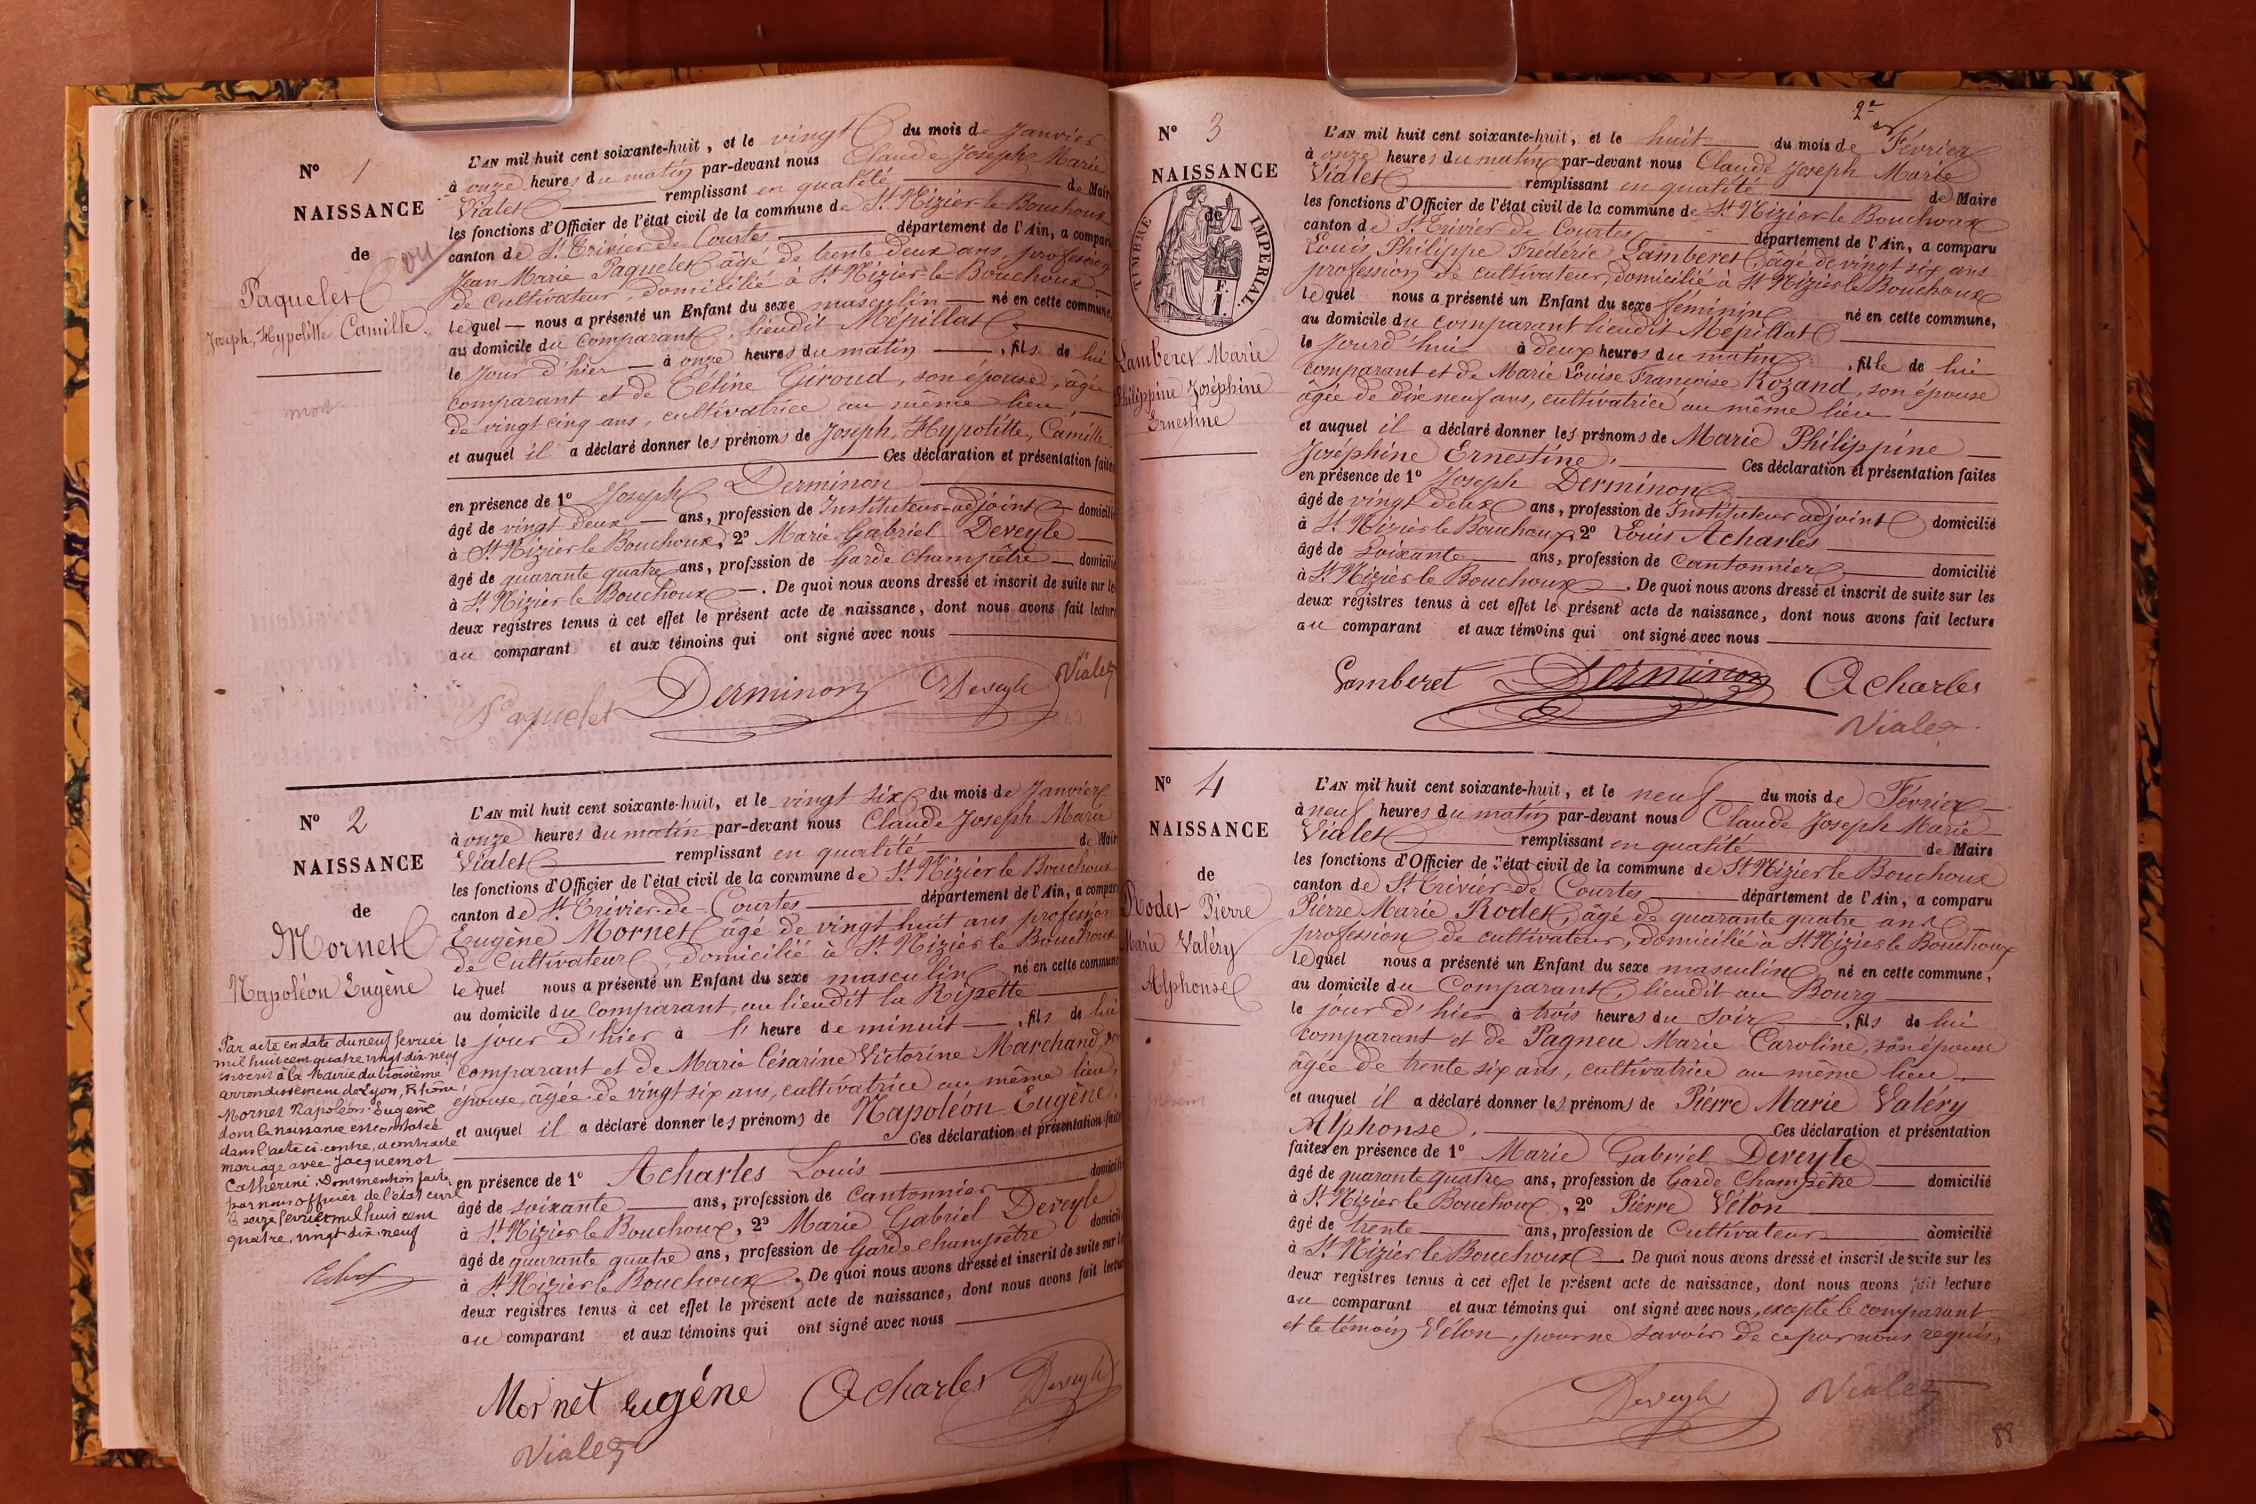 N° 1
NAISSANCE
de
vu
Paquelet
Joseph, Hypolitte Camille.
mort
L'AN mil huit cent soixante-huit, et le vingt du mois de Janvier
à onze heures du matin par-devant nous Claude Joseph Marie
Vialet remplissant en qualité de Maire
les fonctions d'Officier de l'état civil de la commune de St Nizier le Bouchoux
canton de St Trivier de Courtes département de l'Ain, a comparu
Jean Marie Paquelet âgé de trente deux ans, profession
de cultivateur, domicilié à St Nizier le Bouchoux
lequel nous a présenté un Enfant du sexe masculin né en cette commune,
au domicile du comparant, lieudit Mépillat
le jour d'hier à onze heures du matin, fils de lui
comparant et de Céline Giroud, son épouse, âgée
de vingt cinq ans, cultivatrice au même lieu,
et auquel il a déclaré donner les prénoms de Joseph, Hypolitte, Camille.
Ces déclaration et présentation faites
en présence de 1° Joseph Derminon
âgé de vingt deux ans, profession de Instituteur-adjoint domicilié
à St Nizier le Bouchoux, 2° Marie Gabriel Deveyle
âgé de quarante quatre ans, profession de Garde champêtre domicilié
à St Nizier le Bouchoux. De quoi nous avons dressé et inscrit de suite sur les
deux registres tenus à cet effet le présent acte de naissance, dont nous avons fait lecture
au comparant et aux témoins qui ont signé avec nous
Paquelet Derminon Deveyle Vialet
N° 2
NAISSANCE
de
Mornet
Napoléon Eugène
Par acte en date du neuf février
mil huit cent quatre vingt dix neuf
inscrit à la Mairie du troisième
arrondissement de Lyon, Rhône,
Mornet Napoléon Eugène
dont la naissance est constatée
dans l'acte ci-contre, a contracté
mariage avec Jacquemot
Catherine. Dont mention faite
par nous officier de l'état civil
le seize février mil huit cent
quatre vingt dix neuf
L'AN mil huit cent soixante-huit, et le vingt six du mois de Janvier
à onze heures du matin par-devant nous Claude Joseph Marie
Vialet remplissant en qualité de Maire
les fonctions d'Officier de l'état civil de la commune de St Nizier le Bouchoux
canton de St Trivier-de-Courtes département de l'Ain, a comparu
Eugène Mornet âgé de vingt huit ans profession
de cultivateur, domicilié à St Nizier le Bouchoux
lequel nous a présenté un Enfant du sexe masculin né en cette commune
au domicile du comparant, au lieudit la Ripette
le jour d'hier à l' heure de minuit, fils de lui
comparant et de Marie Césarine Victorine Marchand, son
épouse, âgée de vingt six ans, cultivatrice au même lieu,
et auquel il a déclaré donner les prénoms de Napoléon Eugène.
Ces déclaration et présentation faites
en présence de 1° Acharles Louis
âgé de soixante ans, profession de cantonnier domicilié
à St Nizier le Bouchoux, 2° Marie Gabriel Deveyle
âgé de quarante quatre ans, profession de Garde champêtre domicilié
à St Nizier le Bouchoux. De quoi nous avons dressé et inscrit de suite sur les
deux registres tenus à cet effet le présent acte de naissance, dont nous avons fait lecture
au comparant et aux témoins qui ont signé avec nous
Mornet Eugéne Acharles Deveyle
Vialet
2e
N° 3
NAISSANCE
de
TIMBRE IMPÉRIAL
1 F.
Lamberet Marie
Philippine Joséphine
Ernestine
L'AN mil huit cent soixante-huit, et le huit du mois de Février
à onze heures du matin par-devant nous Claude Joseph Marie
Vialet remplissant en qualité de Maire
les fonctions d'Officier de l'état civil de la commune de St Nizier le Bouchoux
canton de St Trivier de Courtes département de l'Ain, a comparu
Louis Philippe Frédéric Lamberet, âgé de vingt six ans
profession de cultivateur, domicilié à St Nizier le Bouchoux
lequel nous a présenté un Enfant du sexe féminin né en cette commune,
au domicile du comparant lieudit Mépillat
le Jourd'hui à deux heures du matin, fille de lui
comparant et de Marie Louise Françoise Rozand, son épouse
âgée de dix neuf ans, cultivatrice au même lieu
et auquel il a déclaré donner les prénoms de Marie Philippine
Joséphine Ernestine. Ces déclaration et présentation faites
en présence de 1° Joseph Derminon
âgé de vingt deux ans, profession de Instituteur adjoint domicilié
à St Nizier le Bouchoux, 2° Louis Acharles
âgé de soixante ans, profession de cantonnier domicilié
à St Nizier le Bouchoux. De quoi nous avons dressé et inscrit de suite sur les
deux registres tenus à cet effet le présent acte de naissance, dont nous avons fait lecture
au comparant et aux témoins qui ont signé avec nous
Lamberet Derminon Acharles
Vialet
N° 4
NAISSANCE
de
Rodet Pierre
Marie Valéry
Alphonse
L'AN mil huit cent soixante-huit, et le neuf du mois de Février
à neuf heures du matin par-devant nous Claude Joseph Marie
Vialet remplissant en qualité de Maire
les fonctions d'Officier de l'état civil de la commune de St Nizier le Bouchoux
canton de St Trivier-de Courtes département de l'Ain, a comparu
Pierre Marie Rodet, âgé de quarante quatre ans
profession de cultivateur, domicilié à St Nizier le Bouchoux
lequel nous a présenté un Enfant du sexe masculin né en cette commune,
au domicile du comparant, lieudit au Bourg
le jour d'hier à trois heures du soir, fils de lui
comparant et de Pagneu Marie Caroline, son épouse
âgée de trente six ans, cultivatrice au même lieu.
et auquel il a déclaré donner les prénoms de Pierre Marie Valéry
Alphonse. Ces déclaration et présentation
faites en présence de 1° Marie Gabriel Deveyle
âgé de quarante quatre ans, profession de Garde Champêtre domicilié
à St Nizier le Bouchoux, 2° Pierre Vélon
âgé de trente ans, profession de Cultivateur domicilié
à St Nizier le Bouchoux. De quoi nous avons dressé et inscrit de suite sur les
deux registres tenus à cet effet le présent acte de naissance, dont nous avons fait lecture
au comparant et aux témoins qui ont signé avec nous, excepté le comparant
et le témoin Vélon, pour ne savoir de ce par nous requis.
Deveyle Vialet
88